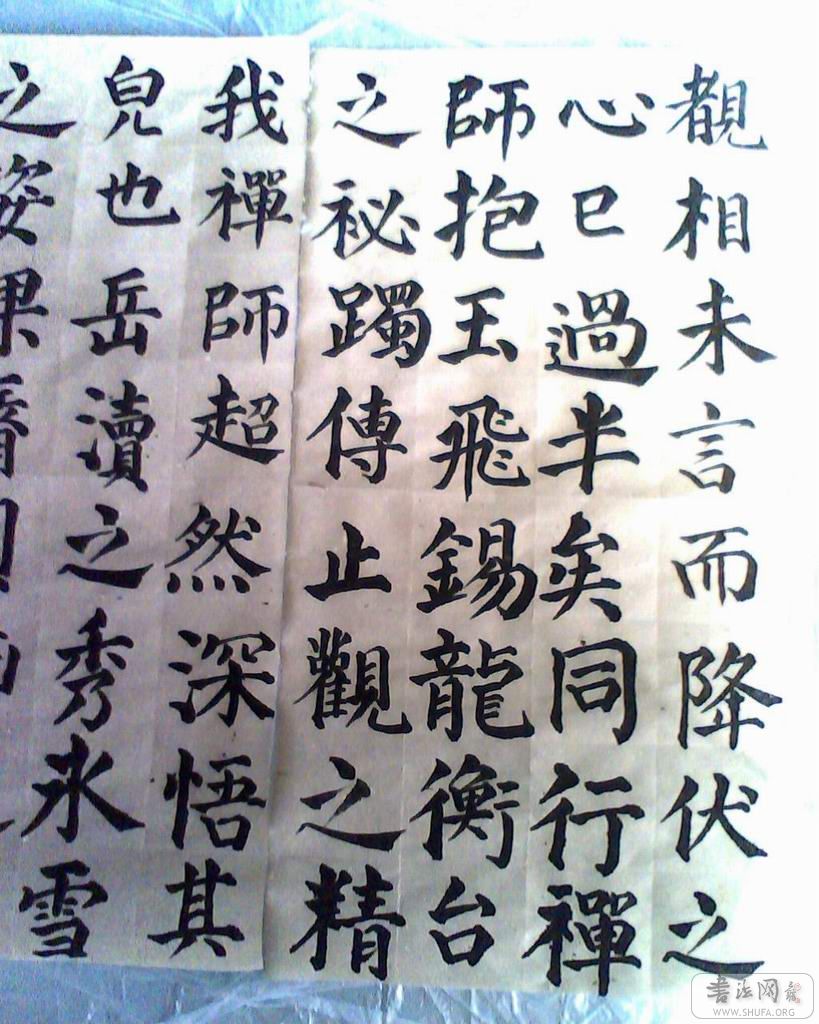 覩相未言而降伏之
心已過半矣同行禪
師抱玉飛錫龍衡台
之祕躅傳止觀之精
我禪師超然深悟其
皃也岳瀆之秀氷雪
之姿果
書法网
WWW.SHUFA.ORG